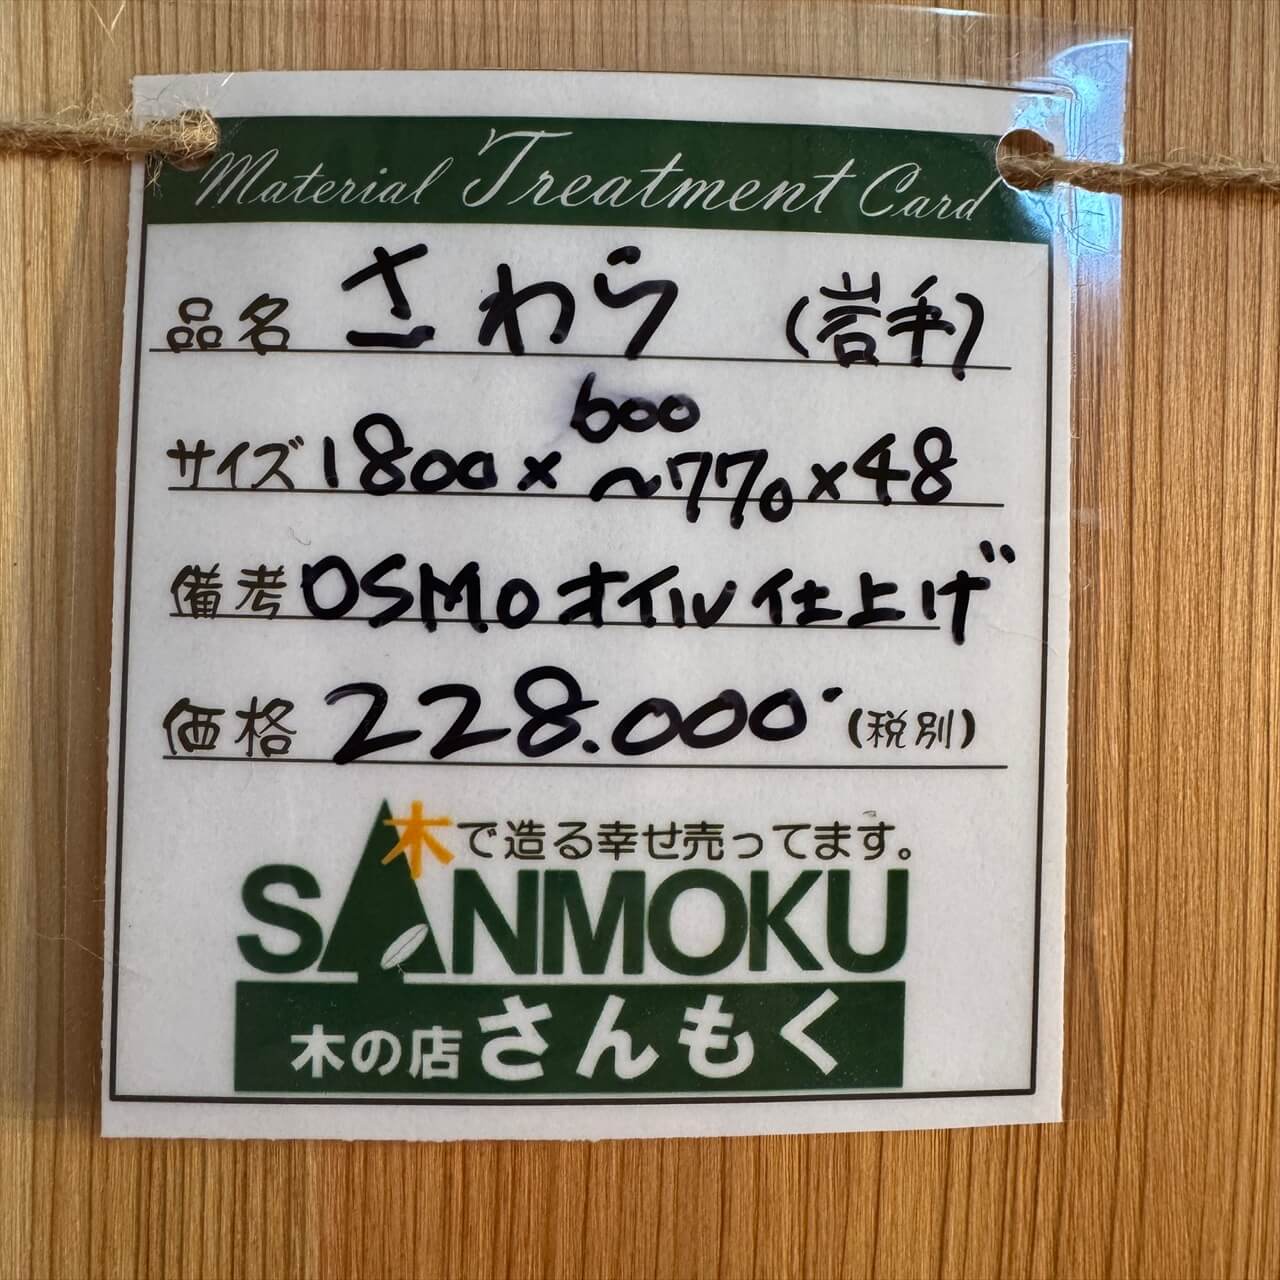 Material Treatment Card
品名 さわら (岩手)
サイズ 1800 × 600 ~770 × 48
備考 OSMOオイル仕上げ
価格 228.000 (税別)
木で造る幸せ売ってます。
SANMOKU
木の店 さんもく